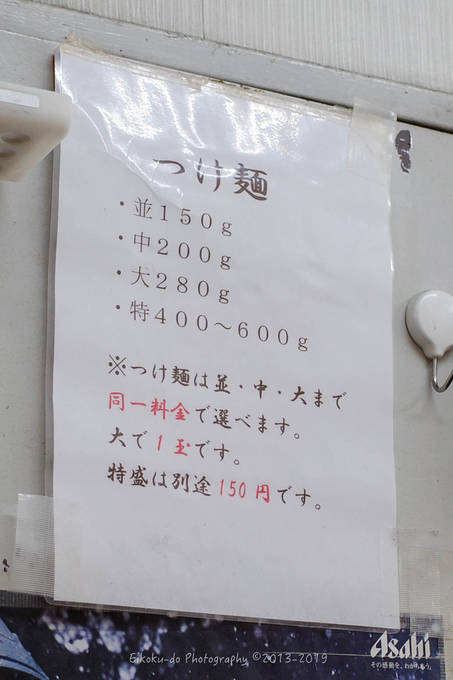 つけ麺
・並150g
・中200g
・大280g
・特400～600g
※つけ麺は並・中・大まで
同一料金で選べます。
大で1玉です。
特盛は別途150円です。
Asahi
その感動を、わかちあう。
Eikoku-do Photography ©2013-2019